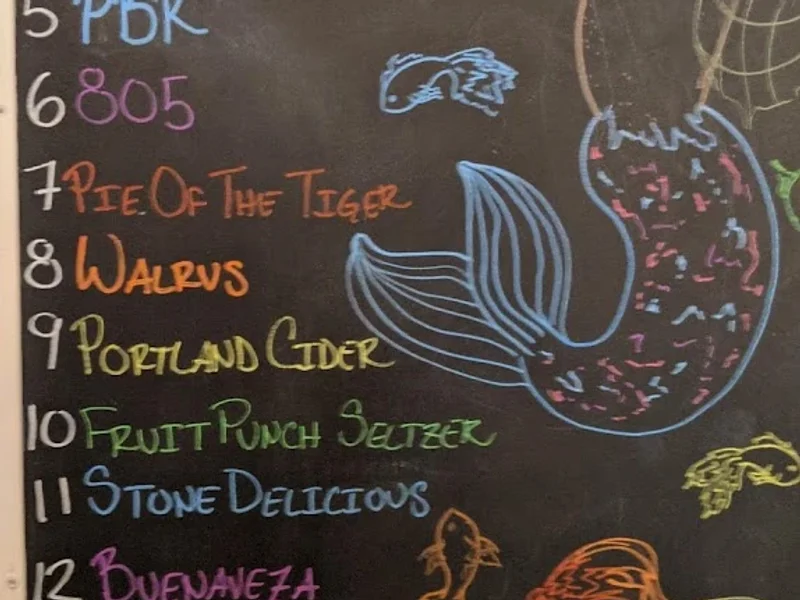 5 PBR
6 805
7 PIE OF THE TIGER
8 WALRUS
9 PORTLAND CIDER
10 FRUIT PUNCH SELTZER
11 STONE DELICIOUS
12 BUENAVEZA